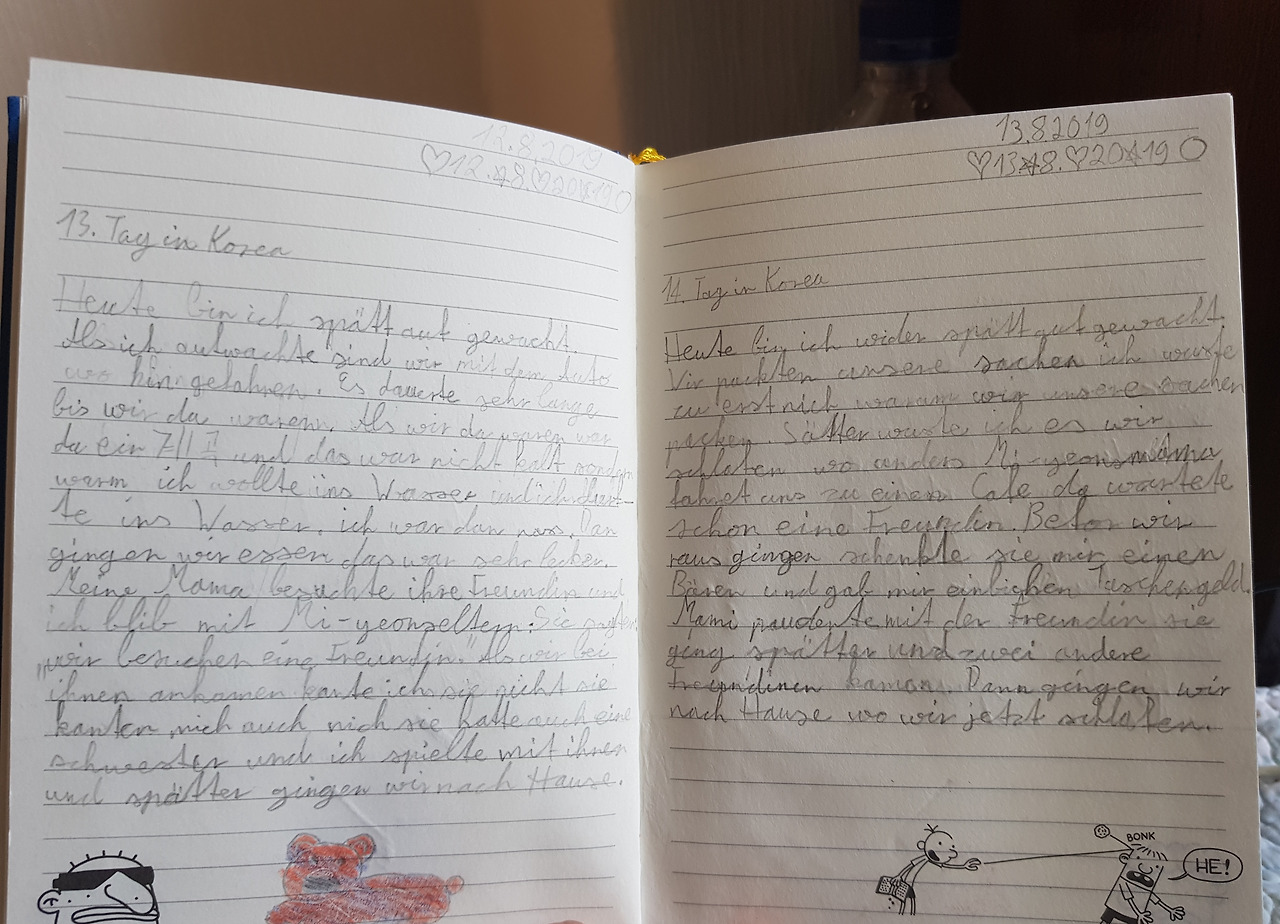 12.8.2019
♡12.☆8.♡20☆19○
13. Tag in Korea
Heute bin ich spätt auf gewacht.
Als ich aufwachte sind wir mit dem Auto
wo hin gefahren. Es dauerte sehr lange
bis wir da waren. Als wir da waren war
da ein und das war nicht kalt sondern
warm ich wollte ins Wasser und ich durf-
te ins Wasser. ich war dan nass. Dan
gingen wir essen das war sehr lecker.
Meine Mama besuchte ihre Freundin und
ich blib mit Mi-yeonseltern: Sie sagten
„wir besuchen eine Freundin." Als wir bei
ihnen ankamen kante ich sie nicht sie
kanten mich auch nich sie hatte auch eine
schwester und ich spielte mit ihnen
und spätter gingen wir nach Hause.
13.8.2019
♡13☆8.♡20☆19○
14. Tag in Korea
Heute bin ich wider spätt auf gewacht.
Wir packten unsere sachen ich wuste
zu erst nich warum wir unsere sachen
packen. Sätter wuste ich es wir
schlafen wo anders Mi-yeonsmama
fahret uns zu einen Cafe da wartete
schon eine Freundin. Befor wir
raus gingen schenkte sie mir einen
Bären und gab mir einbichen Taschengeld.
Mami paudente mit der Freundin sie
ging spätter und zwei andere
Freundinen kamen. Dann gingen wir
nach Hause wo wir jetzt schlafen.
BONK
HE!